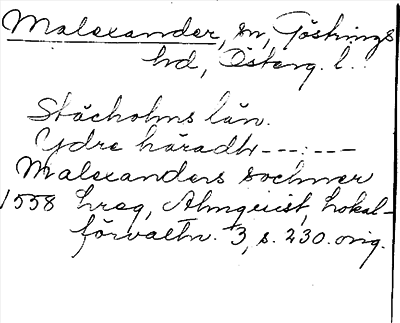 Malexander, sn, Göstrings
hd, Österg. l.
Stächolms län.
Ydre häradh ---:---
Malexanders sochner
1558 hreg, Almquist, Lokal-
förvaltn. 3, s. 230. orig.